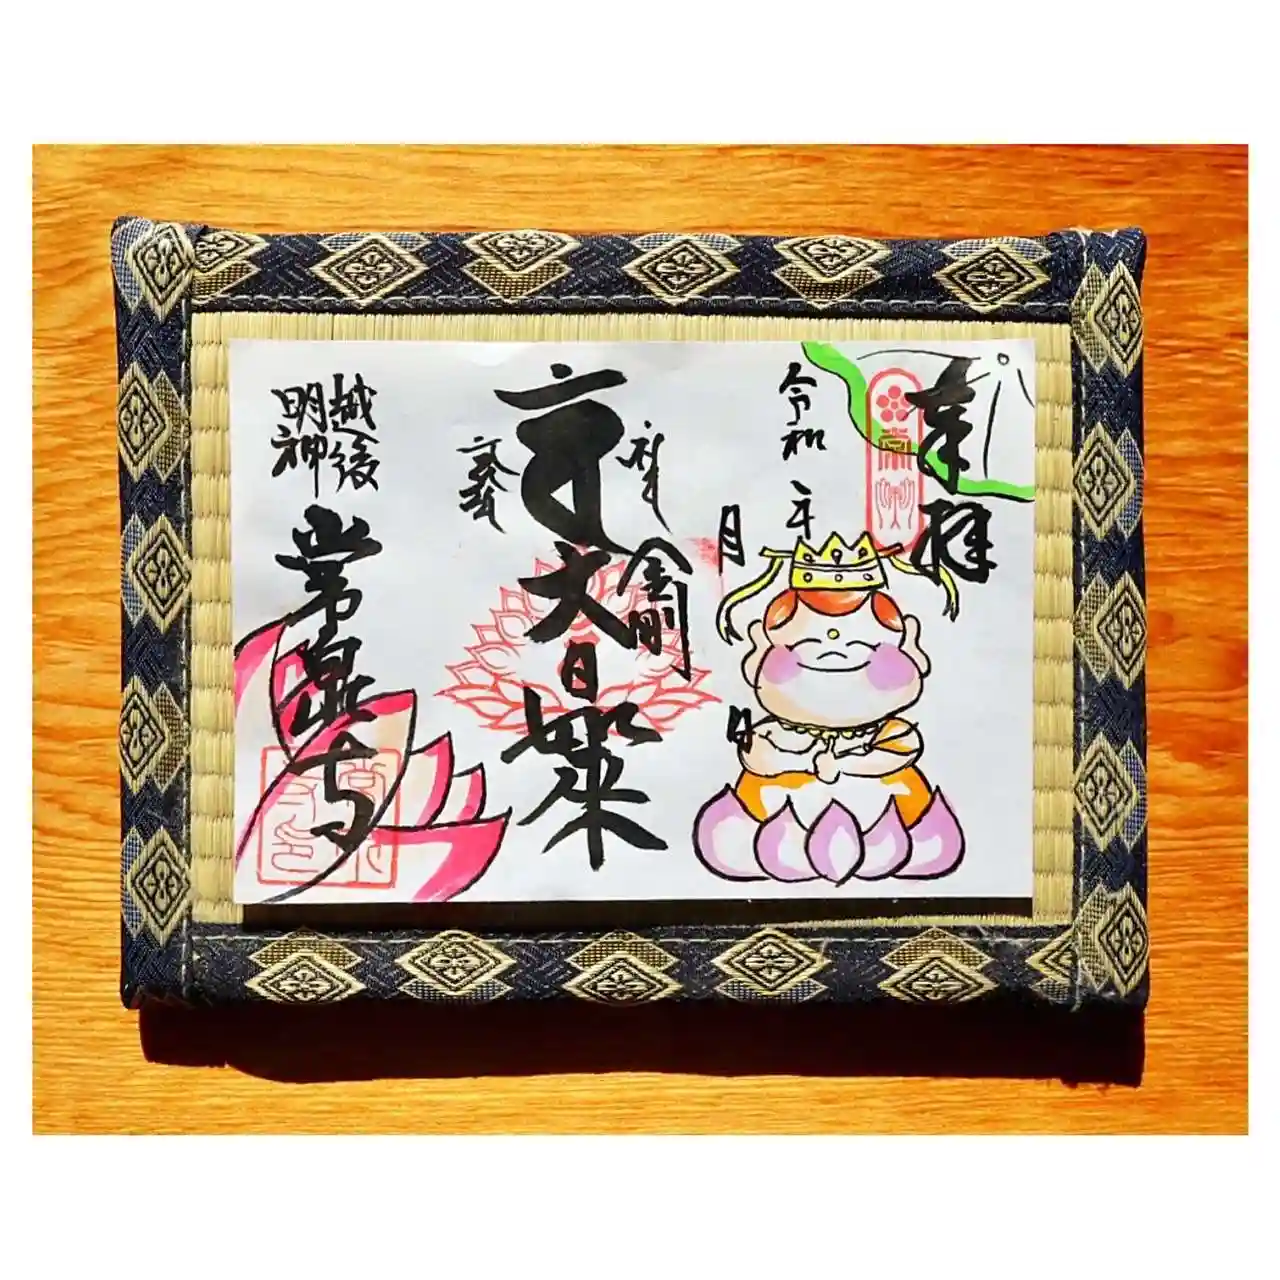 奉拝
令和　年
月
日
金剛
大日如来
越後
明神
常泉寺